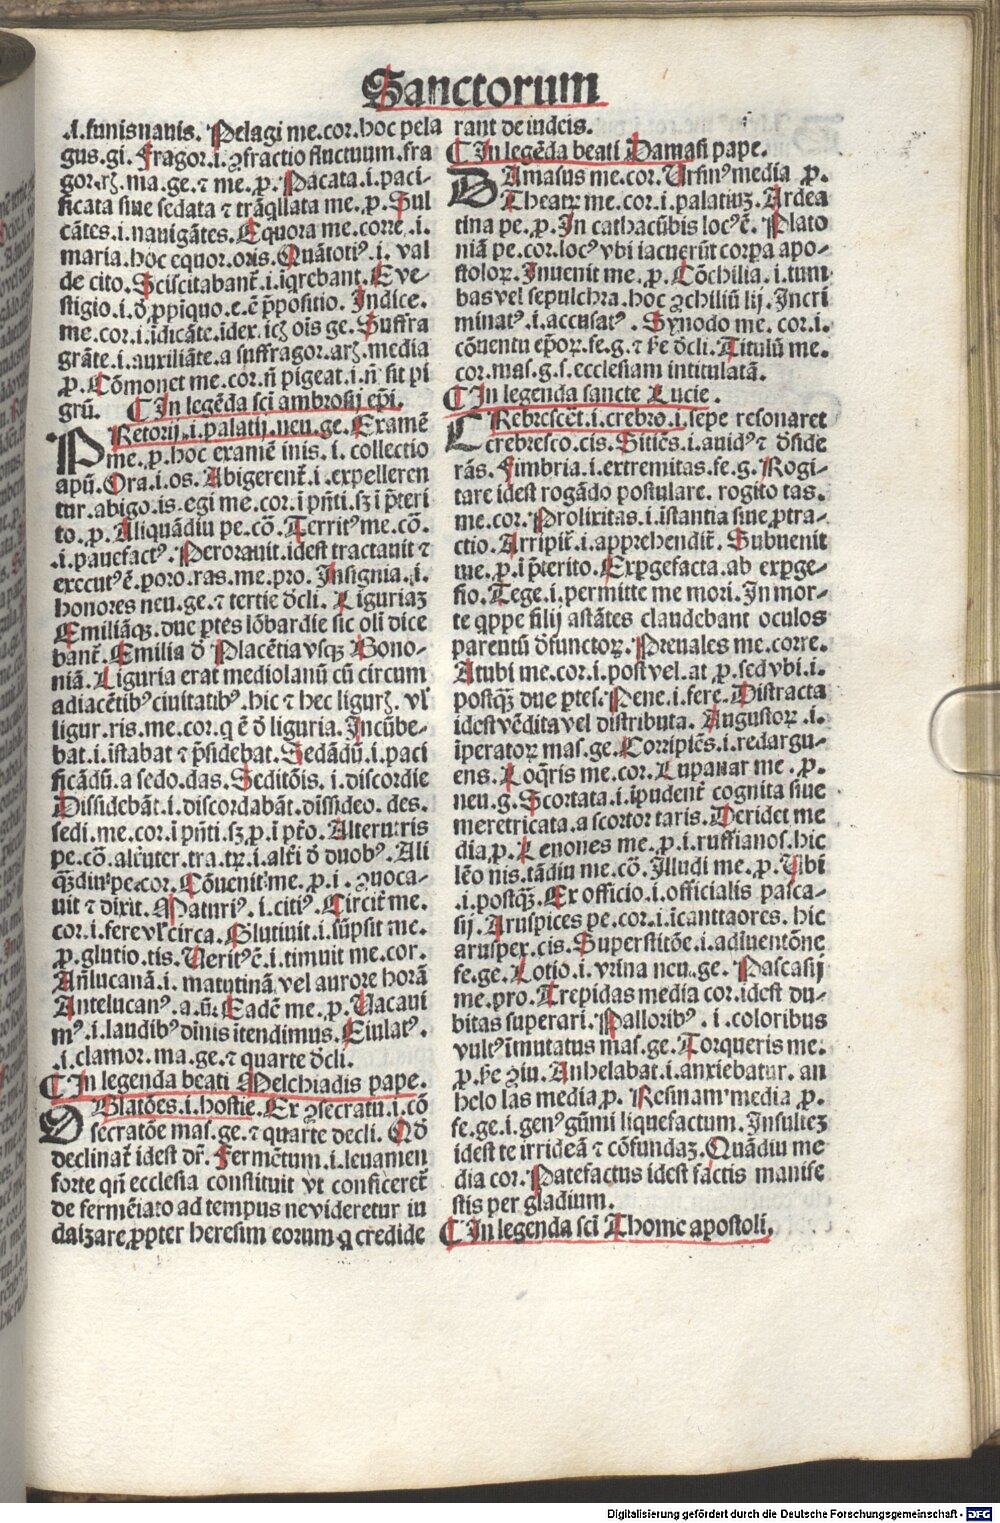 Sanctorum
.i. funis nanis. Pelagi me.cor.hoc pela
gus.gi. Fragor.i. ꝯfractio fluctuum.fra
gor.rꝫ.ma.ge.⁊ me.p. Pacata.i.paci-
ficata siue sedata ⁊ trāqllata me.p. Sul
cātes.i.nauigātes. Equora me.corre.i.
maria.hoc equor.oris. Quātotiꝰ.i.val
de cito. Sciscitabant̄.i.iqrebant. Eve-
stigio.i.ꝺ ꝓpiquo.e.ē p̄positio. Indice.
me.cor.i.idicāte.idex.icꝫ oīs ge. Suffra
grāte.i.auxiliāte.a suffragor.arꝫ.media
p. Cōmonet me.cor.n̄ pigeat.i.n̄ sit pi
grū. ¶ In legēda sci ambrosij ep̄i.
PRetorij.i.palatij.neu.ge. Examē
me.p.hoc examē inis.i.collectio
apū. Ora.i.os. Abigerent̄.i.expelleren
tur.abigo.is.egi me.cor.i p̄nti.sꝫ i p̄teri
to.p. Aliquādiu pe.cō. Territꝰ me.cō.
.i.pauefactꝰ. Perorauit.idest tractauit ⁊
executꝰ ē.poro.ras.me.pro. Insignia.i.
honores neu.ge.⁊ tertie ꝺcli. Liguriaꝫ
Emiliāqꝫ.due ptes lōbardie sic oli dice
bant̄. Emilia ꝺ Placētia vsqꝫ Bono-
niā. Liguria erat mediolanū cū circum
adiacētibꝰ ciuitatibꝰ.hic ⁊ hec ligurꝫ. vl̄
ligur.ris.me.cor.q ē ꝺ liguria. Incūbe-
bat.i.istabat ⁊ p̄sidebat. Sedādū.i.paci
ficādū.a sedo.das. Seditōis.i.discordie
Dissidebāt.i.discordabāt.dissideo.des.
sedi.me.cor.i p̄nti.sꝫ p.i p̄to. Alteruteris
pe.cō.alt̄uter.tra.tꝝ.i.alt̄i ꝺ duobꝰ. Ali
qꝫdiu pe.cor. Cōuenit me.p.i.ꝯuoca-
uit ⁊ dixit. Maturiꝰ.i.citiꝰ. Circit̄ me.
cor.i.fere vl̄ circa. Glutiuit.i.sūpsit me.
p.glutio.tis. Ueritꝰ ē.i.timuit me.cor.
An̄lucanā.i.matutinā vel aurore horā
Antelucanꝰ.a.ū. Eadē me.p. Uacaui
mꝰ.i.laudibꝰ diuis itendimus. Eiulatꝰ.
.i.clamor.ma.ge.⁊ quarte ꝺcli.
¶ In legenda beati Melchiadis pape.
OBlatōes.i.hostie. Ex ꝯsecratu.i.cō
secratōe mas.ge.⁊ quarte decli. Qꝺ
declinat̄ idest dr̄. Fermētum.i.leuamen
forte qn̄ ecclesia constituit vt conficeret̄
de fermēiato ad tempus ne videretur iu
daizare ꝓpter heresim eorum q credide
rant de iudeis.
¶ In legēda beati Damasi pape.
DAmasus me.cor. Ursinꝰ media p.
Theatꝝ me.cor.i.palatiuꝫ. Ardea
tina pe.p. In cathacūbis locꝰ ē. Plato
niā pe.cor.locꝰ vbi iacuerūt corpa apo-
stoloꝝ. Inuenit me.p. Cōchilia.i.tum
bas vel sepulchra.hoc ꝯchiliū lij. Incri
minatꝰ.i.accusatꝰ. Synodo me.cor.i.
cōuentu ep̄oꝝ.fe.g.⁊ sc̄e ꝺcli. Titulū me.
cor.mas.g.s.ecclesiam intitulatā.
¶ In legenda sancte Lucie.
CRebrescēt.i.crebro.i.sepe resonaret
crebresco.cis. Sitiēs.i.auidꝰ ⁊ ꝺside
rās. Fimbria.i.extremitas.fe.g. Rogi-
tare idest rogādo postulare.rogito tas.
me.cor. Prolixitas.i.istantia siue ꝓtra-
ctio. Arripit̄.i.apprehendit̄. Subuenit
me.p.i p̄terito. Expgefacta.ab expge-
fio. Tege.i.permitte me mori. In mor-
te qppe filij astātes claudebant oculos
parentū ꝺfunctoꝝ. Preuales me.corre.
At ubi me.cor.i.post vel.at p.sed vbi.i.
postqꝫ due ptes. Pene.i.fere. Distracta
idest vēdita vel distributa. Augustoꝝ.i.
ipeiatoꝝ mas.ge. Corripiēs.i.redargu-
ens. Loqris me.cor. Lupanar me.p.
neu.g. Scortata.i.ipudent̄ cognita siue
meretricata.a scortor taris. Deridet me
dia p. Lenones me.p.i.ruffianos.hic
lēo nis.tādiu me.cō. Illudi me.p. Ubi
.i.postqꝫ. Ex officio.i.officialis pasca-
sij. Aruspices pe.cor.i.icanttaores.hic
aruspex.cis. Superstitōe.i.adiuentōne
fe.ge. Lotio.i.vrina neu.ge. Pascasij
me.pro. Trepidas media cor.idest du-
bitas superari. Palloribꝰ.i.coloribus
vultꝰ imutatus mas.ge. Torqueris me.
p.sc̄e ꝯiu. Anhelabat.i.anxiebatur.an
helo las media p. Resinam media p.
fe.ge.i.genꝰ gūmi liquefactum. Insulteꝫ
idest te irrideā ⁊ cōfundaꝫ. Quādiu me
dia cor. Patefactus idest factis manife
stis per gladium.
¶ In legenda sci Thome apostoli.
Digitalisierung gefördert durch die Deutsche Forschungsgemeinschaft - DFG